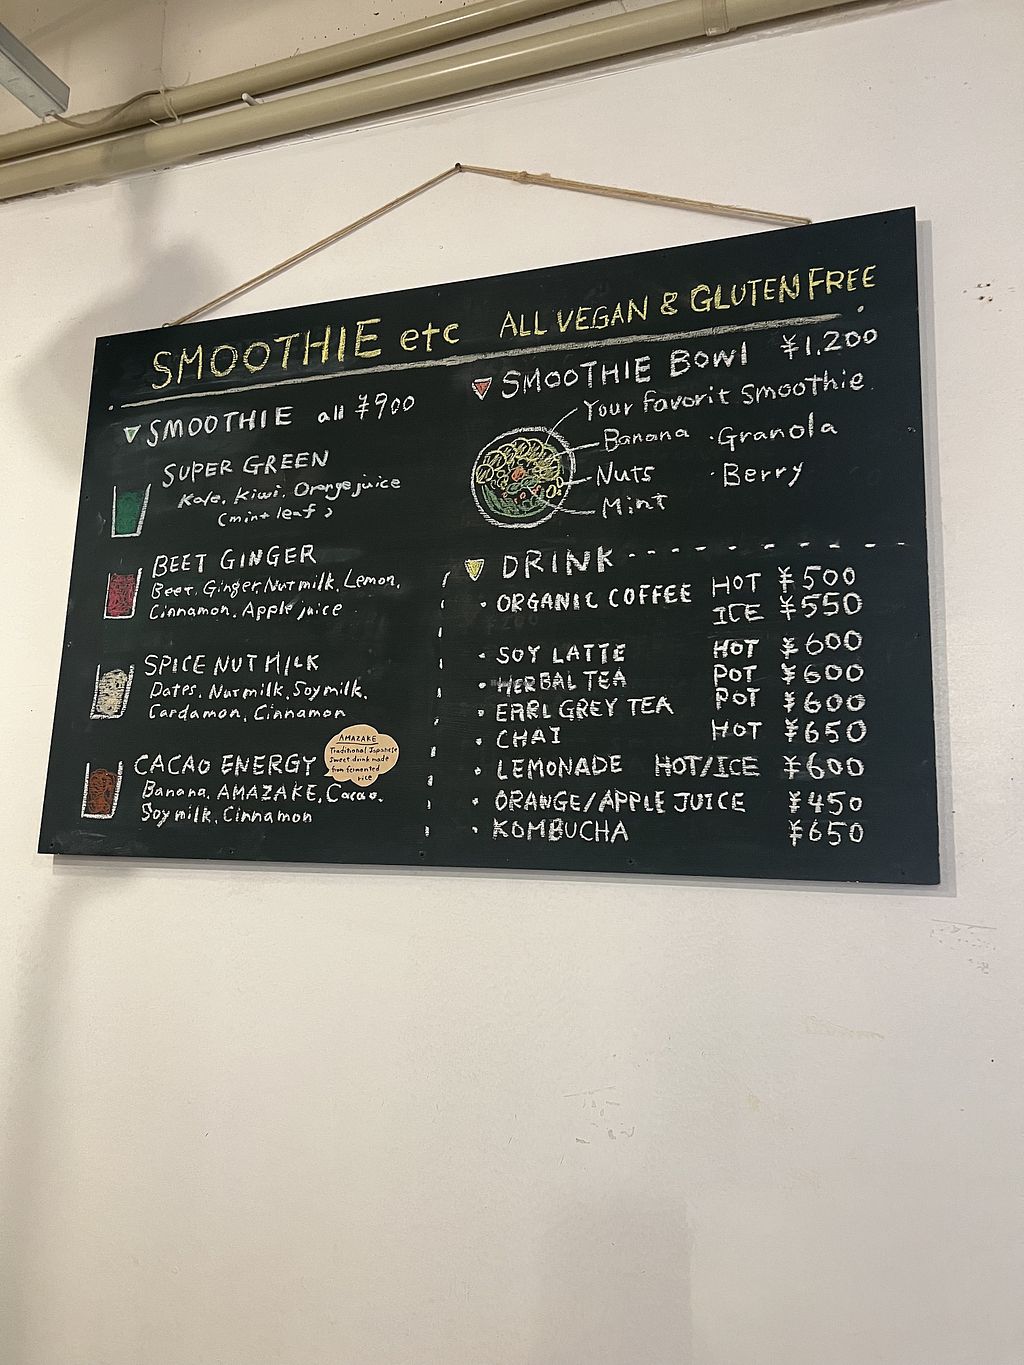 SMOOTHIE etc ALL VEGAN & GLUTEN FREE
SMOOTHIE all ¥900
SUPER GREEN
Kale, kiwi, Orange juice
(mint leaf)
BEET GINGER
Beet, Ginger, Nutmilk, Lemon,
Cinnamon, Apple juice
SPICE NUT MILK
Dates, Nutmilk, Soymilk,
Cardamon, Cinnamon
CACAO ENERGY
AMAZAKE
Traditional Japanese
sweet drink made
from fermented
rice
Banana, AMAZAKE, Cacao,
Soymilk, Cinnamon
SMOOTHIE BOWl ¥1,200
Your favorit smoothie
Banana ・Granola
Nuts ・Berry
Mint
DRINK
・ORGANIC COFFEE HOT ¥500
ICE ¥550
・SOY LATTE HOT ¥600
・HERBAL TEA POT ¥600
・EARL GREY TEA POT ¥600
・CHAI HOT ¥650
・LEMONADE HOT/ICE ¥600
・ORANGE/APPLE JUICE ¥450
・KOMBUCHA ¥650